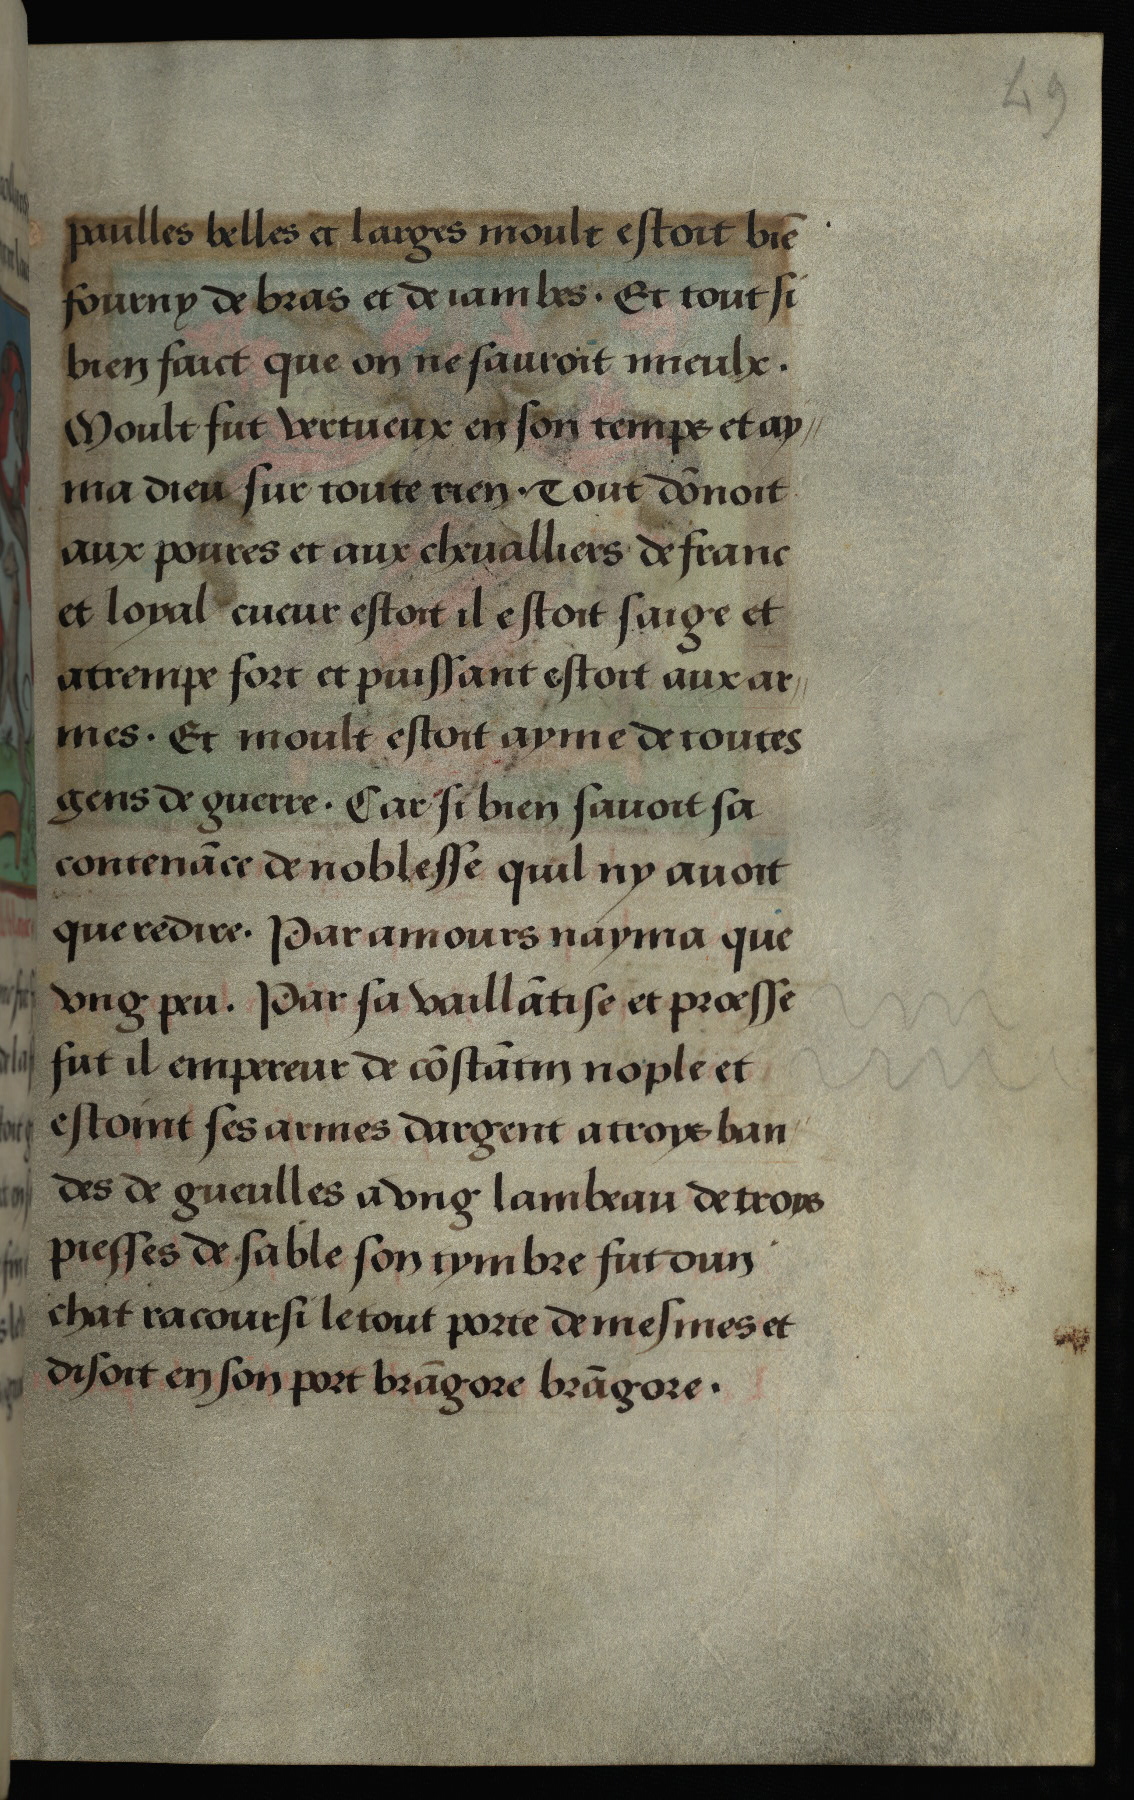 49
paulles belles et larges moult estoit biē
fourny de bras et de iambes. Et tout si
bien faict que on ne sauroit mieulx.
Moult fut vertueux en son temps et ay//
ma dieu sur toute rien. Tout dōnoit
aux poures et aux cheualliers de franc
et loyal cueur estoit il estoit saige et
atrempe fort et puissant estoit aux ar//
mes. Et moult estoit ayme de toutes
gens de guerre. Car si bien sauoit sa
contenāce de noblesse quil ny auoit
que redire. Par amours nayma que
vng peu. Par sa vaillātise et proesse
fut il empereur de cōstātin nople et
estoint ses armes dargent a troys ban
des de gueulles a vng lambeau de troys
piesses de sable son tymbre fut dun
chat racoursi le tout porte de mesmes et
disoit en son port brāgore brāgore.